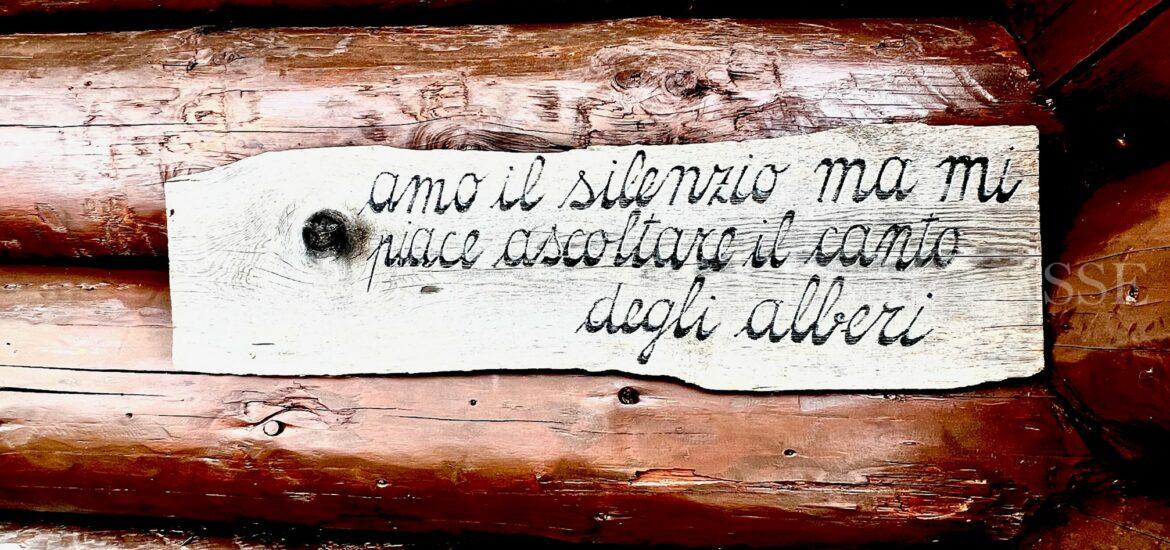 amo il silenzio ma mi
piace ascoltare il canto
degli alberi
SSE